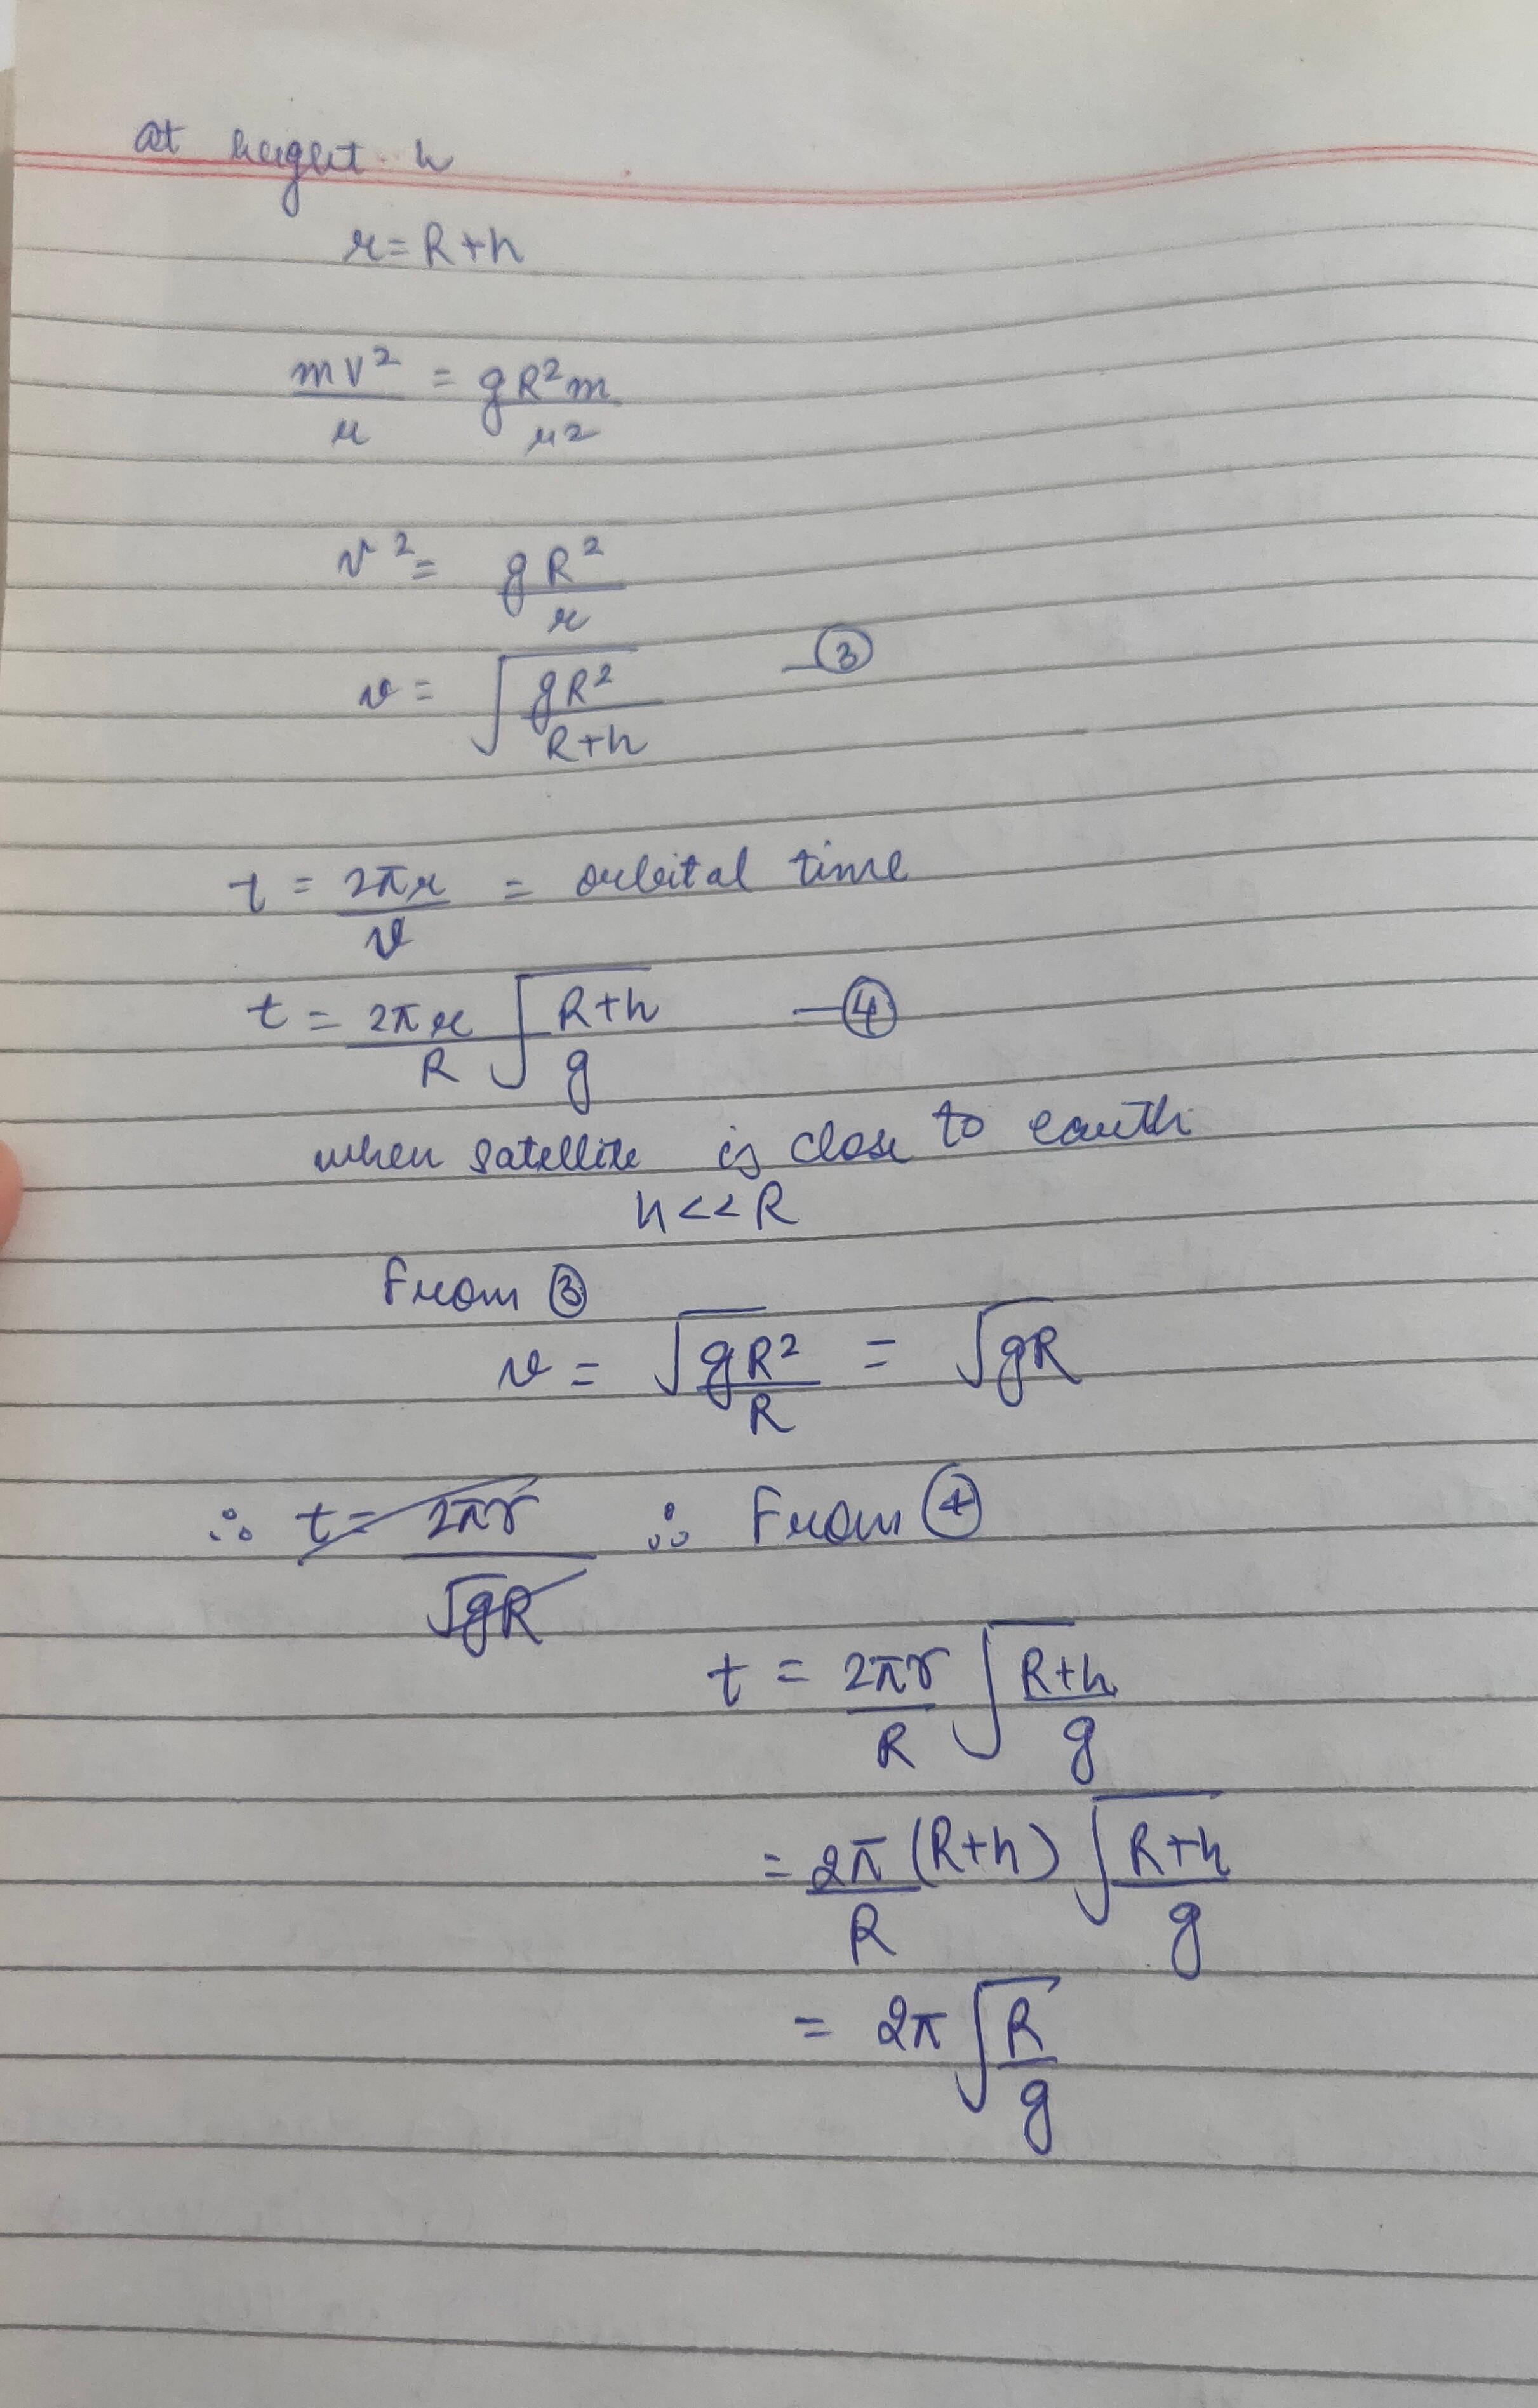 at height h
r = R+h
mv²/r = gR²m/r²
v² = gR²/r
v = √(gR²/(R+h)) —③
t = 2πr/v = orbital time
t = 2πr/R √((R+h)/g) —④
when satellite is close to earth
h<<R
From ③
v = √(gR²/R) = √gR
∴ t = 2πr/√gR ∴ From ④
t = 2πr/R √((R+h)/g)
= 2π(R+h)/R √((R+h)/g)
= 2π √(R/g)